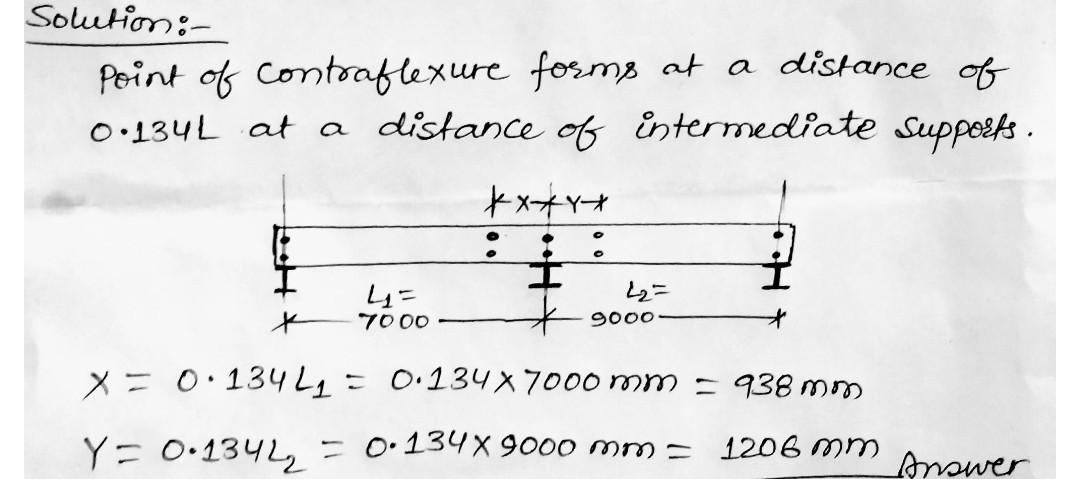 Solution:-
Point of Contraflexure forms at a distance of
0.134L at a distance of intermediate supports.
X Y
L1= L2=
7000 9000
X = 0.134L1 = 0.134X7000 mm = 938 mm
Y = 0.134L2 = 0.134X9000 mm = 1206 mm
Answer